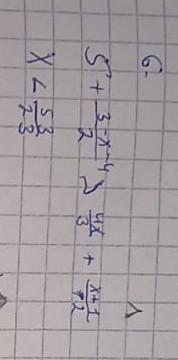 6.
5 + \frac{3-x-4}{2} > \frac{4x}{3} + \frac{x+1}{12}
x < \frac{53}{23}